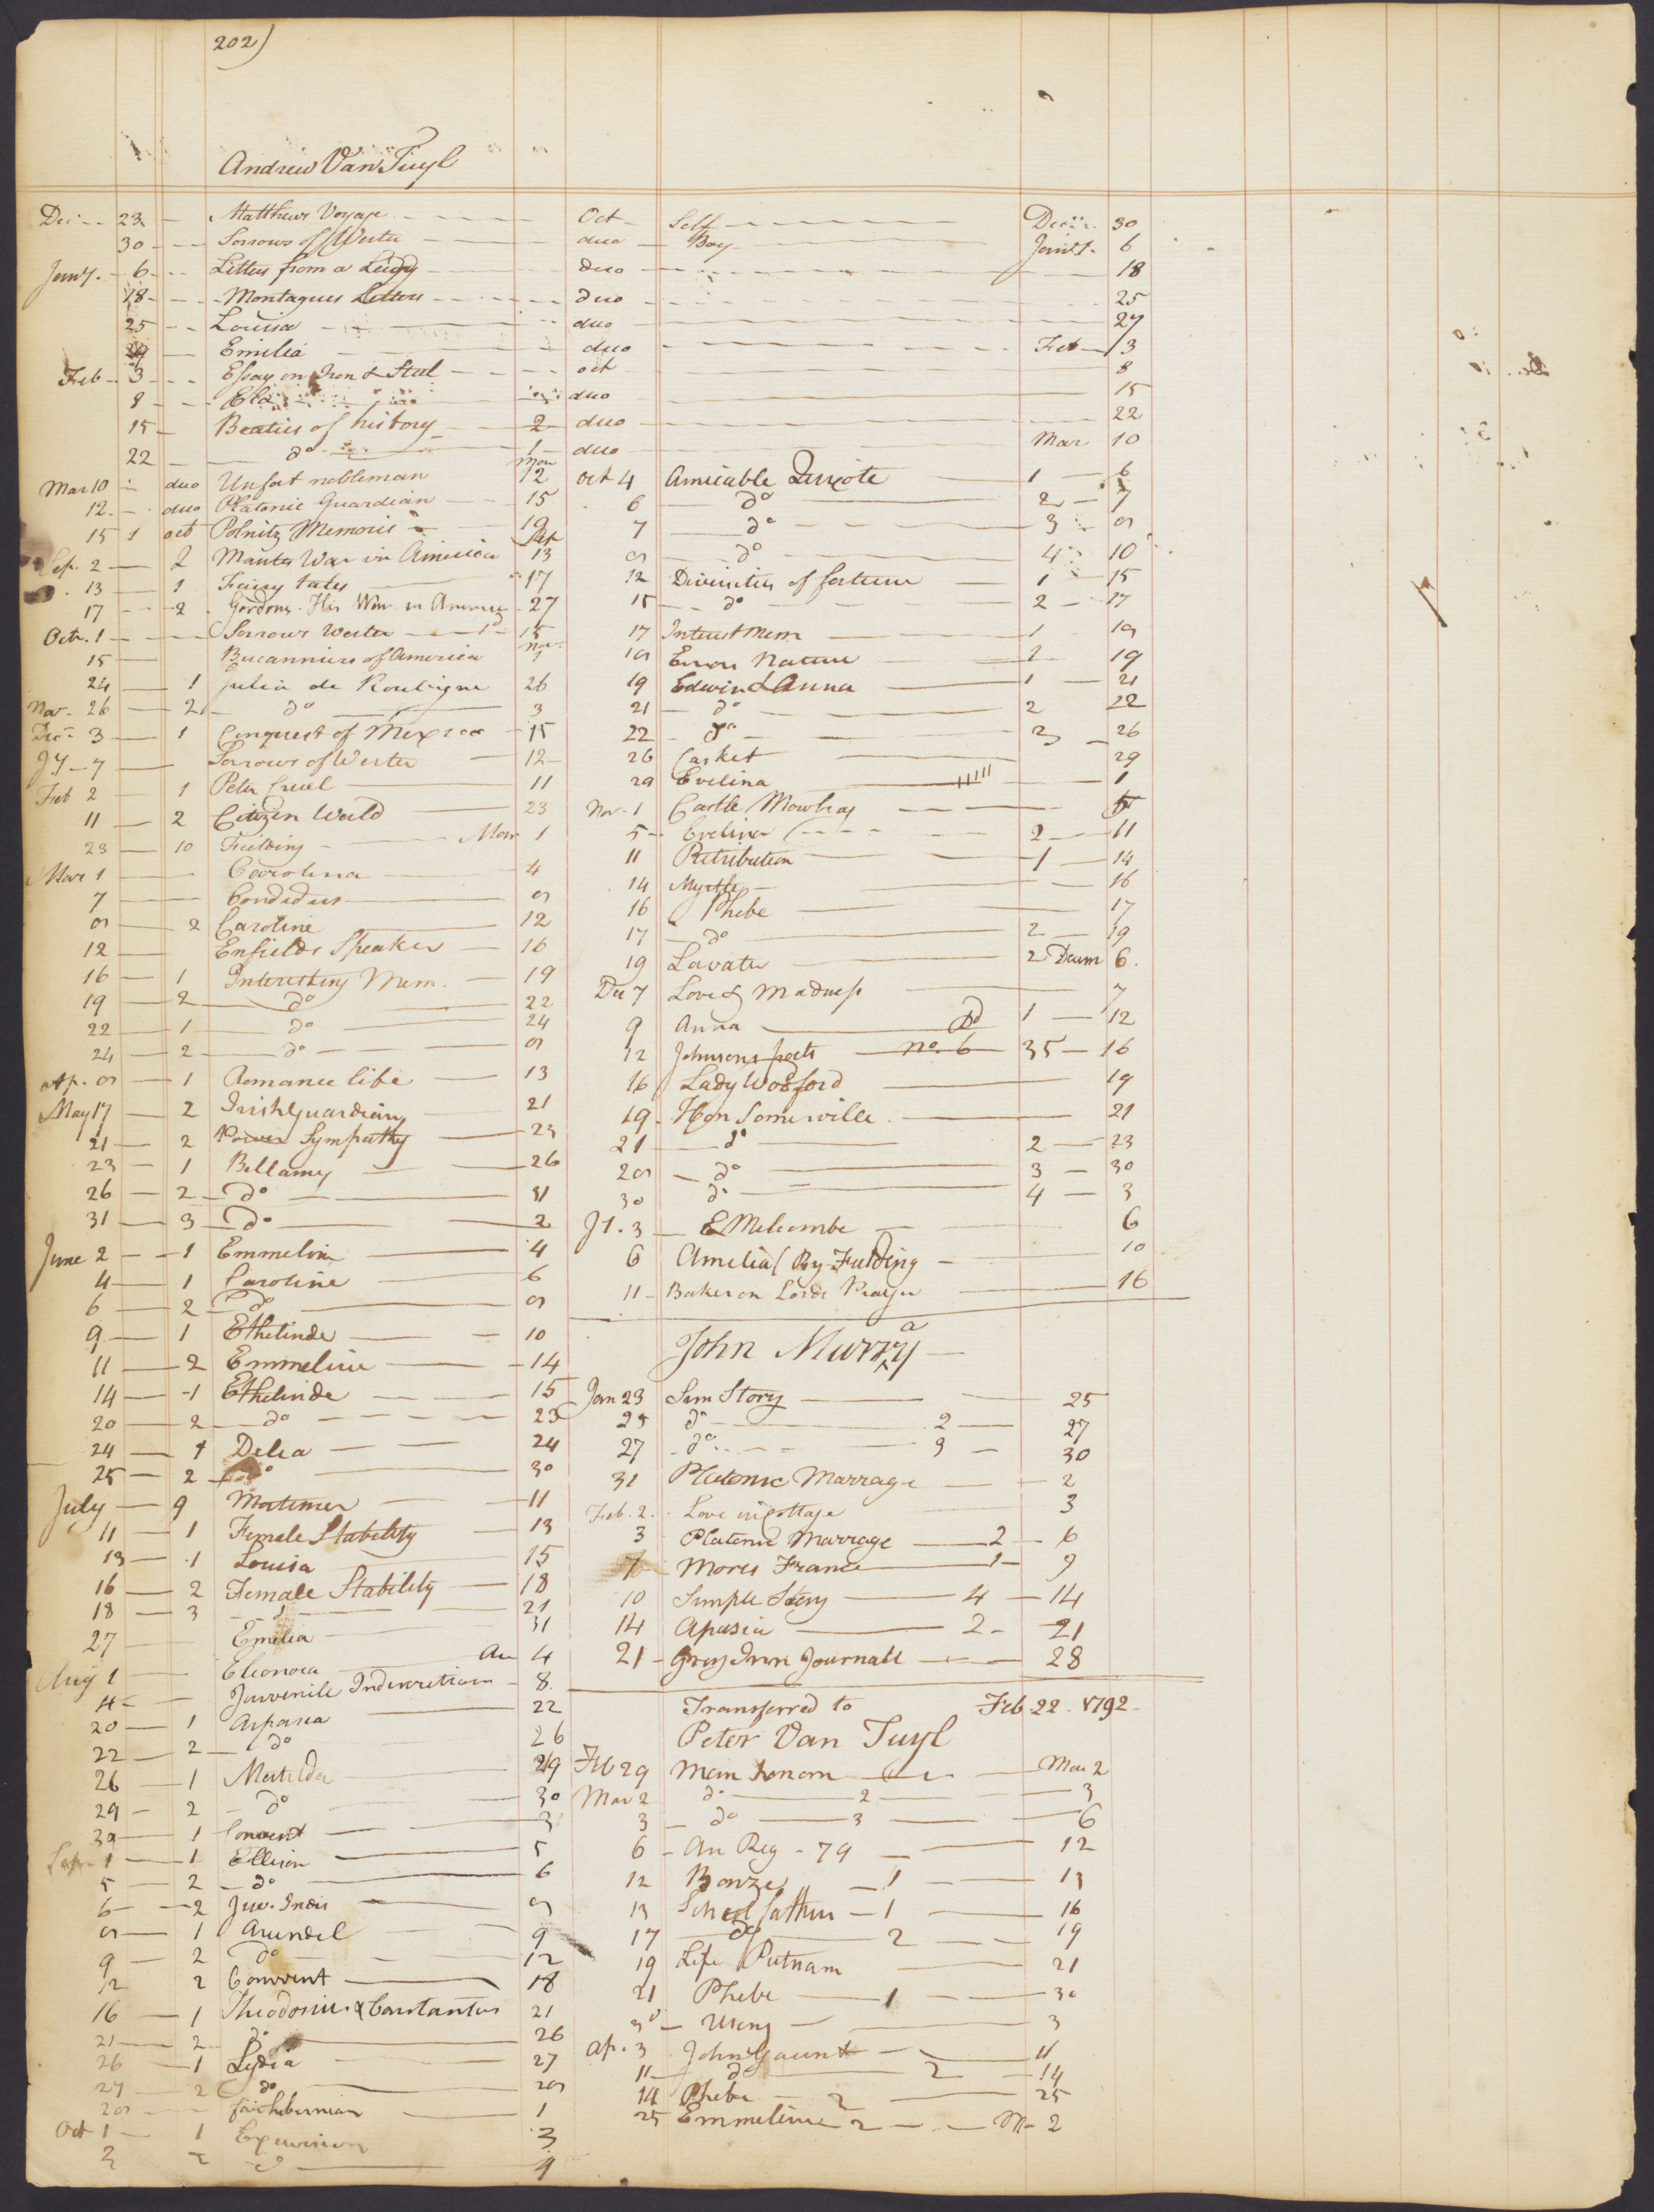 202)
Andrew Van Tuyl
Dec 23 Matthews Voyage Oct Self Decr. 30
30 Sorrows of Werter duo Boy Jany. 6
Jany. 6 Letters from a Lady duo 18
18 Montagues Letters duo 25
25 Louisa duo 27
29 Emilia duo Feb 3
Feb 3 Essay on Iron & Steel oct 8
8 duo 15
15 Beaties of history 2 duo 22
22 do 1 duo Mar 10
Mar 10 duo Unfort nobleman Mar 12
12 duo Platonic Guardian 15
15 1 oct Polnitz Memoris 19
Sep. 2 2 Mantes War in America Sep 13
13 1 Fairy tales 17
17 2 Gordons His War in America 27
Octr. 1 Sorrows Werter 15
15 Bucanniers of America Nov. 1
24 1 Julia de Roubigne 26
Nov. 26 2 do 3
Dec 3 1 Conquest of Mexico 15
JY 7 Sorrows of Werter 12
Feb 2 1 Peter Cruel 11
11 2 Citizen World 23
23 10 Fielding Mar 1
Mar 1 Carolina 4
7 Candidus 9
9 2 Caroline 12
12 Enfields Speaker 16
16 1 Interesting Mem. 19
19 2 do 22
22 1 do 24
24 2 do 9
Ap. 9 1 Romance life 13
May 17 2 Irish Guardian 21
21 2 Power Sympathy 23
23 1 Bellamy 26
26 2 do 31
31 3 do 2
June 2 1 Emmeline 4
4 1 Caroline 6
6 2 do 9
9 1 Ethelinde 10
11 2 Emmeline 14
14 1 Ethelinde 15
20 2 do 23
24 1 Delia 24
25 2 do 30
July 9 Mortimer 11
11 1 Female Stability 13
13 1 Louisa 15
16 2 Female Stability 18
18 3 21
27 Emelia 31
Aug 1 Elionora Au 4
4 Juvenile Indiscretions 8
20 1 Aspasia 22
22 2 do 26
26 1 Matilda 29
29 2 do 30
30 1 Convent 3
Sep. 1 1 Ellison 5
5 2 do 6
6 2 Juv. Indis 9
9 1 Arundel 9
9 2 do 12
12 2 Convent 18
16 1 Theodosius & Constantus 21
21 2 do 26
26 1 Lydia 27
27 2 do 29
29 fair hibernian 1
Oct 1 1 Excursion 3
3 2 do 9
Oct 4 Amicable Quixote 1 6
6 do 2 7
7 do 3 9
9 do 4 10
12 Divinities of fortune 1 15
15 do 2 17
17 Interest Mem 1 19
19 Errors Nature 2 19
19 Edwin & Anna 1 21
21 do 2 22
22 do 3 26
26 Casket 29
29 Evelina 1
Nov. 1 Castle Mowbray 5
5 Evelina 2 11
11 Retribution 1 14
14 Myrtle 16
16 Phebe 17
17 do 2 19
19 Lavater 2 Decem 6.
Dec 7 Love & Madness 7
9 Anna 1 12
12 Johnsons poets No. 6 35 16
16 Lady Wodford 19
19 Hon Somerville 21
21 do 2 23
29 do 3 30
30 do 4 3
JY. 3 E Melcombe 6
6 Amelia (By Fielding 10
11 Baker on Lords Prayer 16
John Murray
Jan 23 Sim Story 25
25 do 2 27
27 do 3 30
31 Platonic Marrage 2
Feb. 2. Love in Cottage 3
3 Platonic Marrage 2 6
7 Mores France 1 9
10 Simple Story 4 14
14 Apasia 2 21
21 Grays Inn Journall 28
Transferred to Feb 22. 1792
Peter Van Tuyl
Feb 29 Man honom Mar 2
Mar 2 do 2 3
3 do 3 6
6 An Reg 79 12
12 Bonze 1 13
13 School fathers 1 16
17 do 2 19
19 Life Putnam 21
21 Phebe 1 30
30 3
Ap. 3 John Gaunt 11
11 do 2 14
14 Phebe 2 25
25 Emmeline 2 M 2